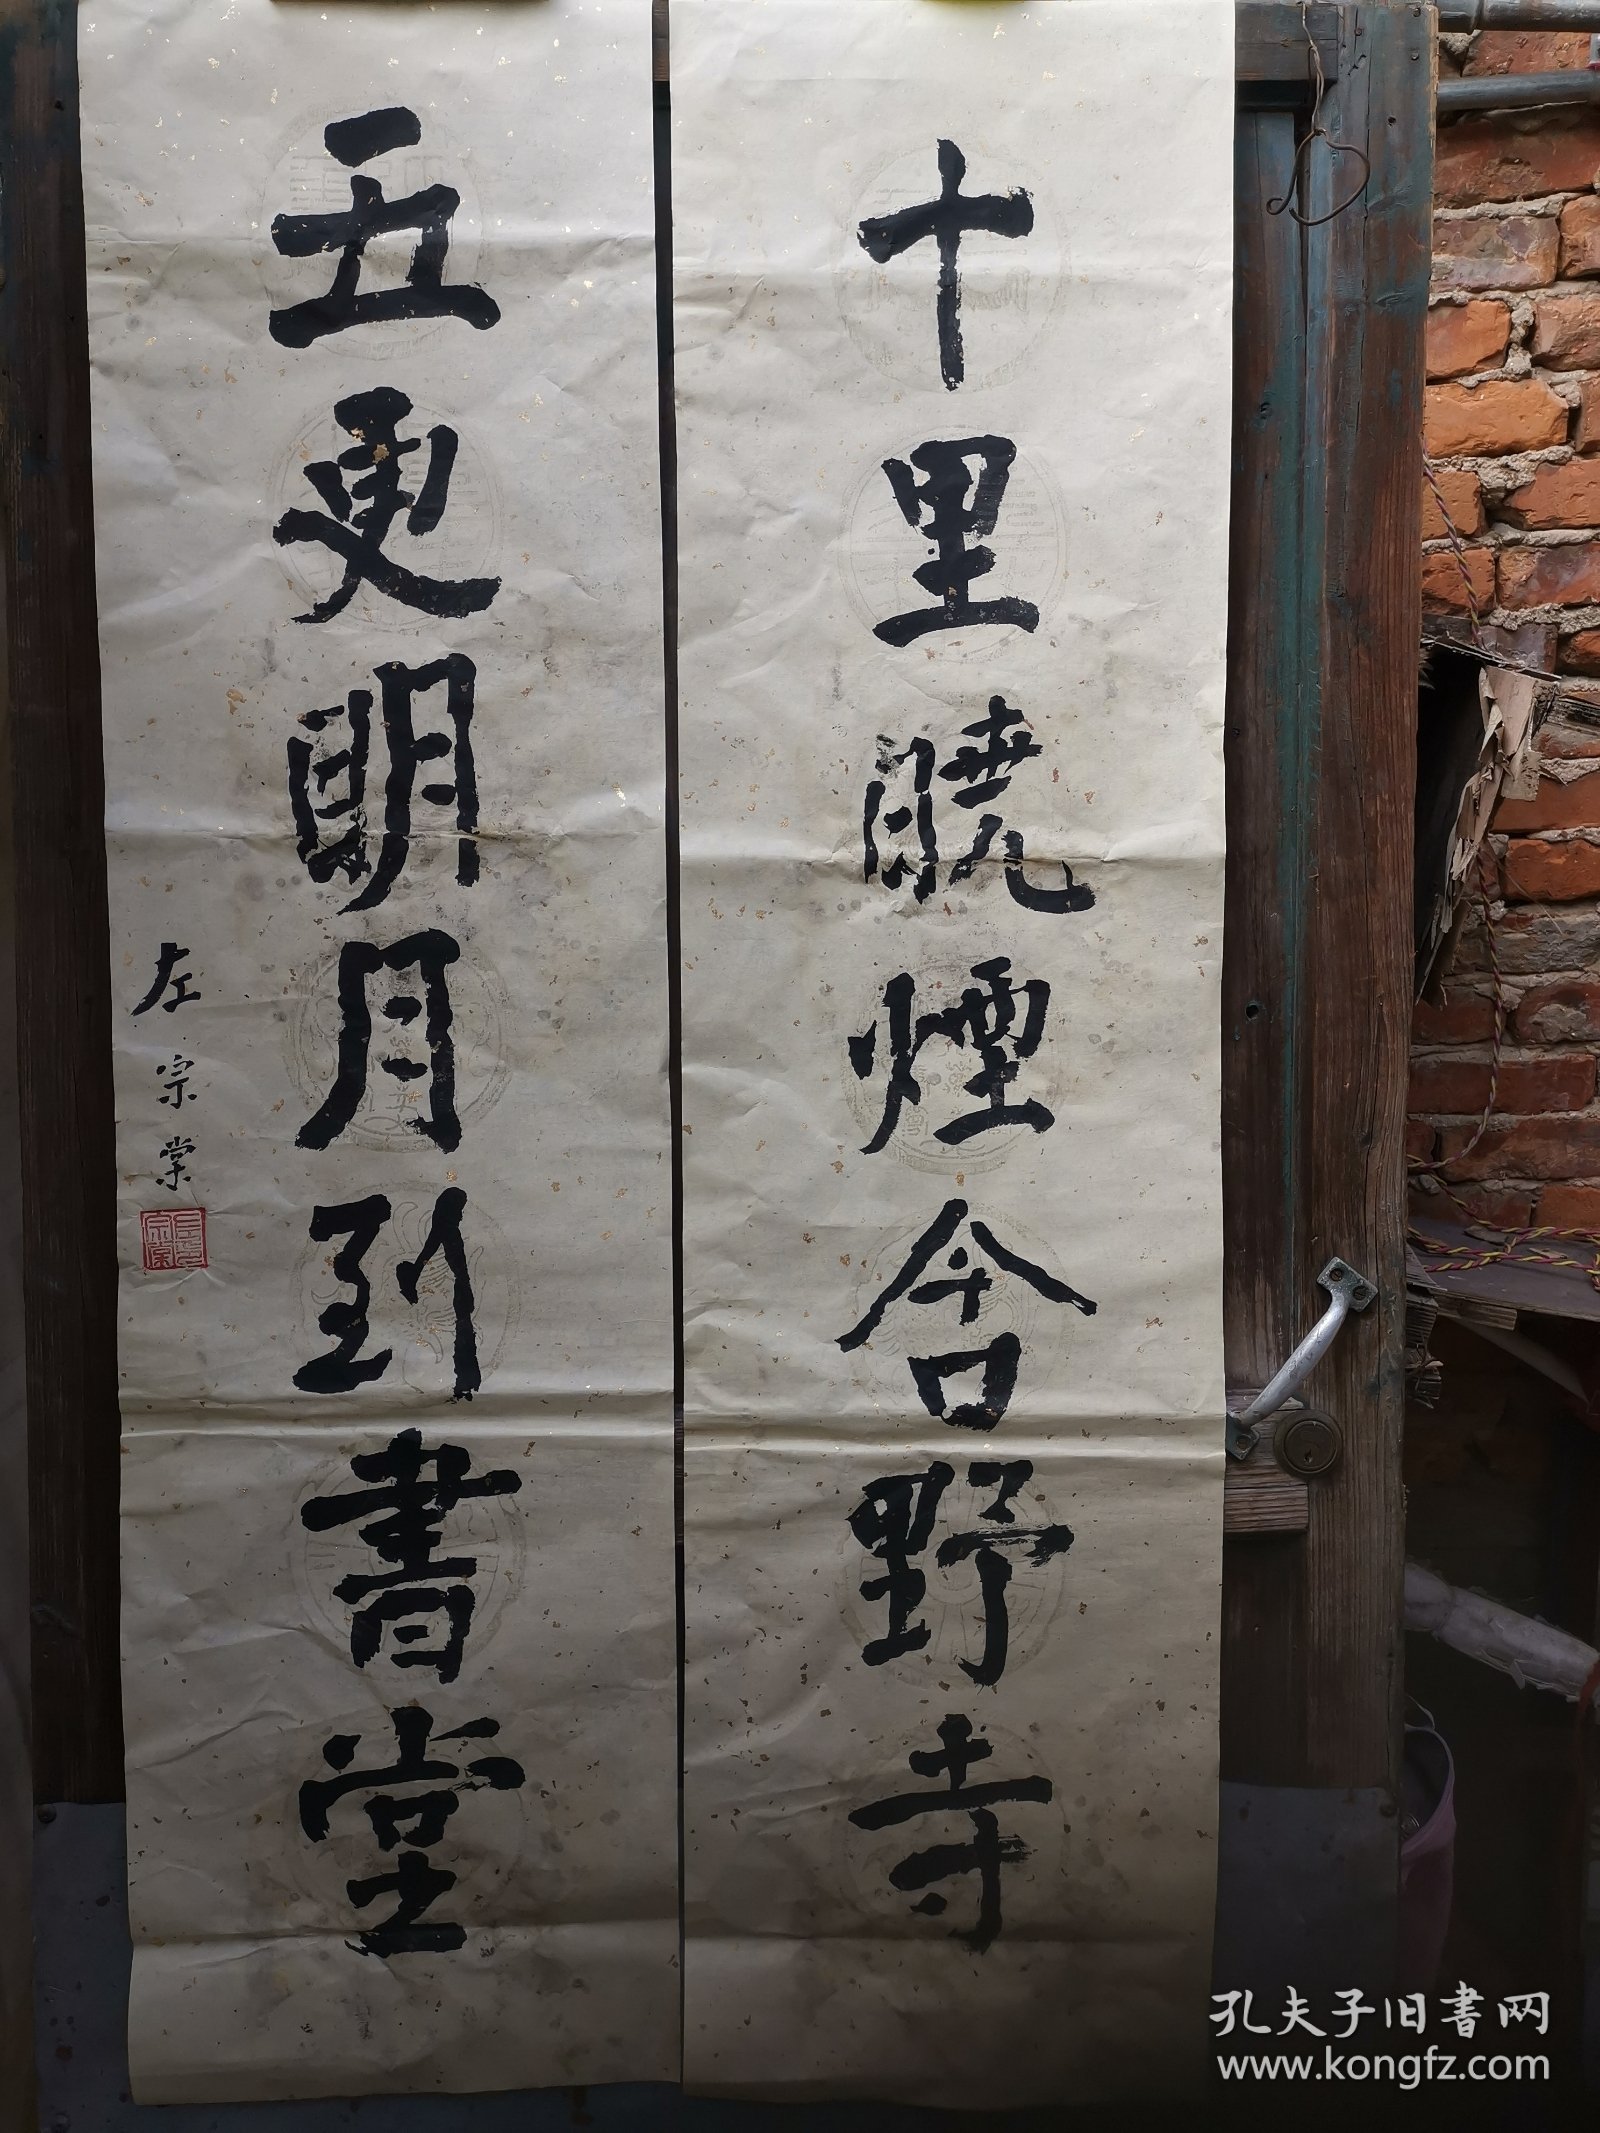 十里曉煙含野寺
五更明月到書堂
左宗棠
孔夫子旧书网
www.kongfz.com